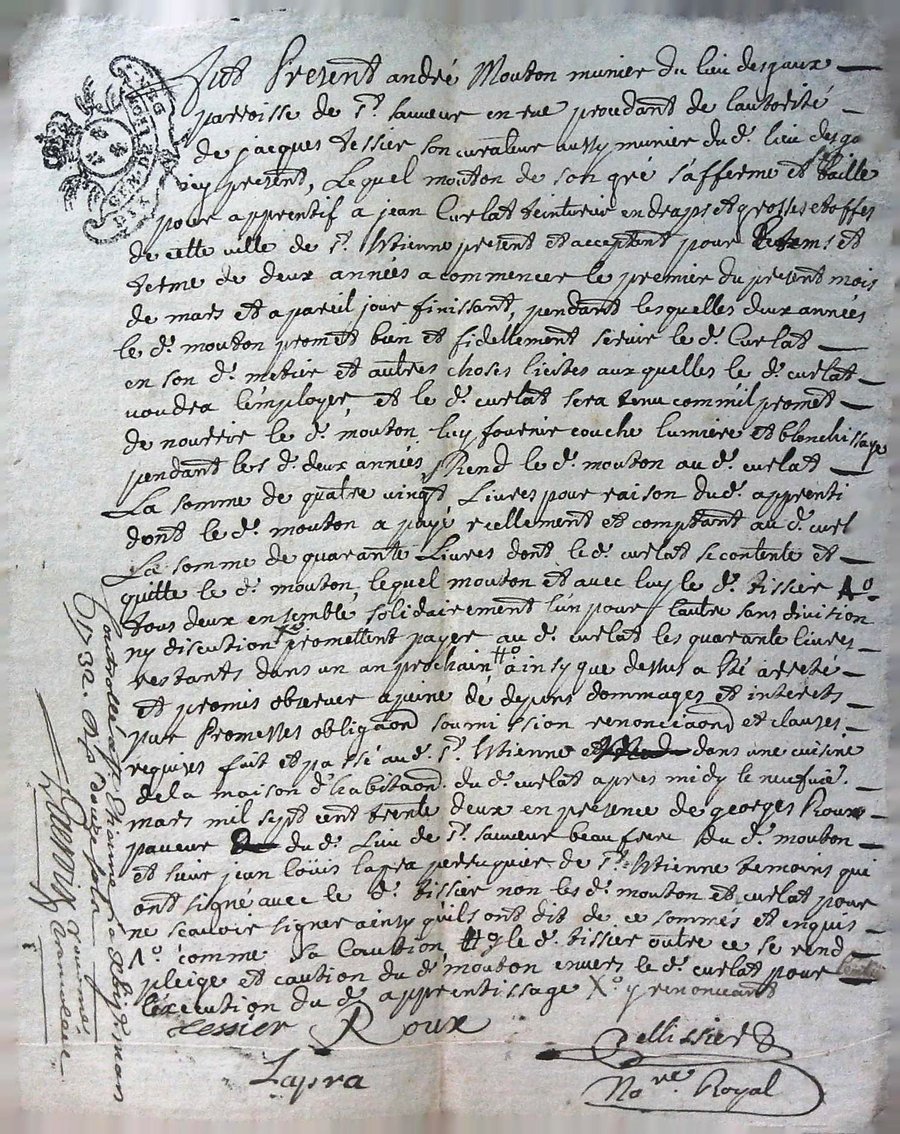 fut Present andré Mouton munier du lieu desgaux
parroisse de st. sauveur en rue procedant de lautorité
de jacques tessier son curateur aussy munier dud. lieu desga
icy present, Lequel mouton de son gré s'afferme et Baille
pour apprentif a jean Curlat teinturier en draps et grosses etoffes
de cette ville de st. Estienne present et acceptant pour et
terme de deux années a commencer le premier du present mois
de mars et a pareil jour finissant, pendant lesquelles deux années
le d. mouton promet bien et fidellement servir le d. Curlat
en son d. metier et autres choses licites auxquelles le d. curlat
voudra l'employer, et le d. curlat sera tenu comm'il promet
de nourrir le d. mouton luy fournir couche lumiere et blanchissage
pendant lesd. deux années, le d. mouton au d. curlat
La somme de quatre vingt Livres pour raison dud. apprenti
dont le d. mouton a payé réellement et comptant au d. curl
La somme de quarante Livres dont le d. curlat se contente et
quitte le d. mouton, lequel mouton et avec luy le d. tissier 1o
tous deux ensemble solidairement l'un pour l'autre sans division
ny discution Xo promettent payer au d. curlat les quarante livres
restants dans un an prochain #o ainsy que dessus a été arreté
et promis observer a peine de depens dommages et interets
par Promesses obligaon soumission renonciaon et clauses
requises fait et passé aud. st. Estienne dans une cuisine
de la maison d'habitaon. du d. curlat apres midy le neufvie.
mars mil sept cent trente deux en presence de georges Roux
paveur du d. Lieu de st. sauveur beau frere du d. mouton
et sieur jean loüis lapra perruquier de st. Estienne temoins qui
ont signé avec le d. tissier non les d. mouton et curlat pour
ne scavoir signer ainsy qu'ils ont dit de ce sommés et enquis
1o comme sa Caultion, #o le d. tissier outre ce se rend
pleige et caution du d. mouton envers le d. curlat pour
l'éxecution du d. apprentissage Xo y renonceant
tessier Roux
Lapra
Pellissier
Nore Royal
Controllé a st. Etienne le mars
1732. Rs douze sols